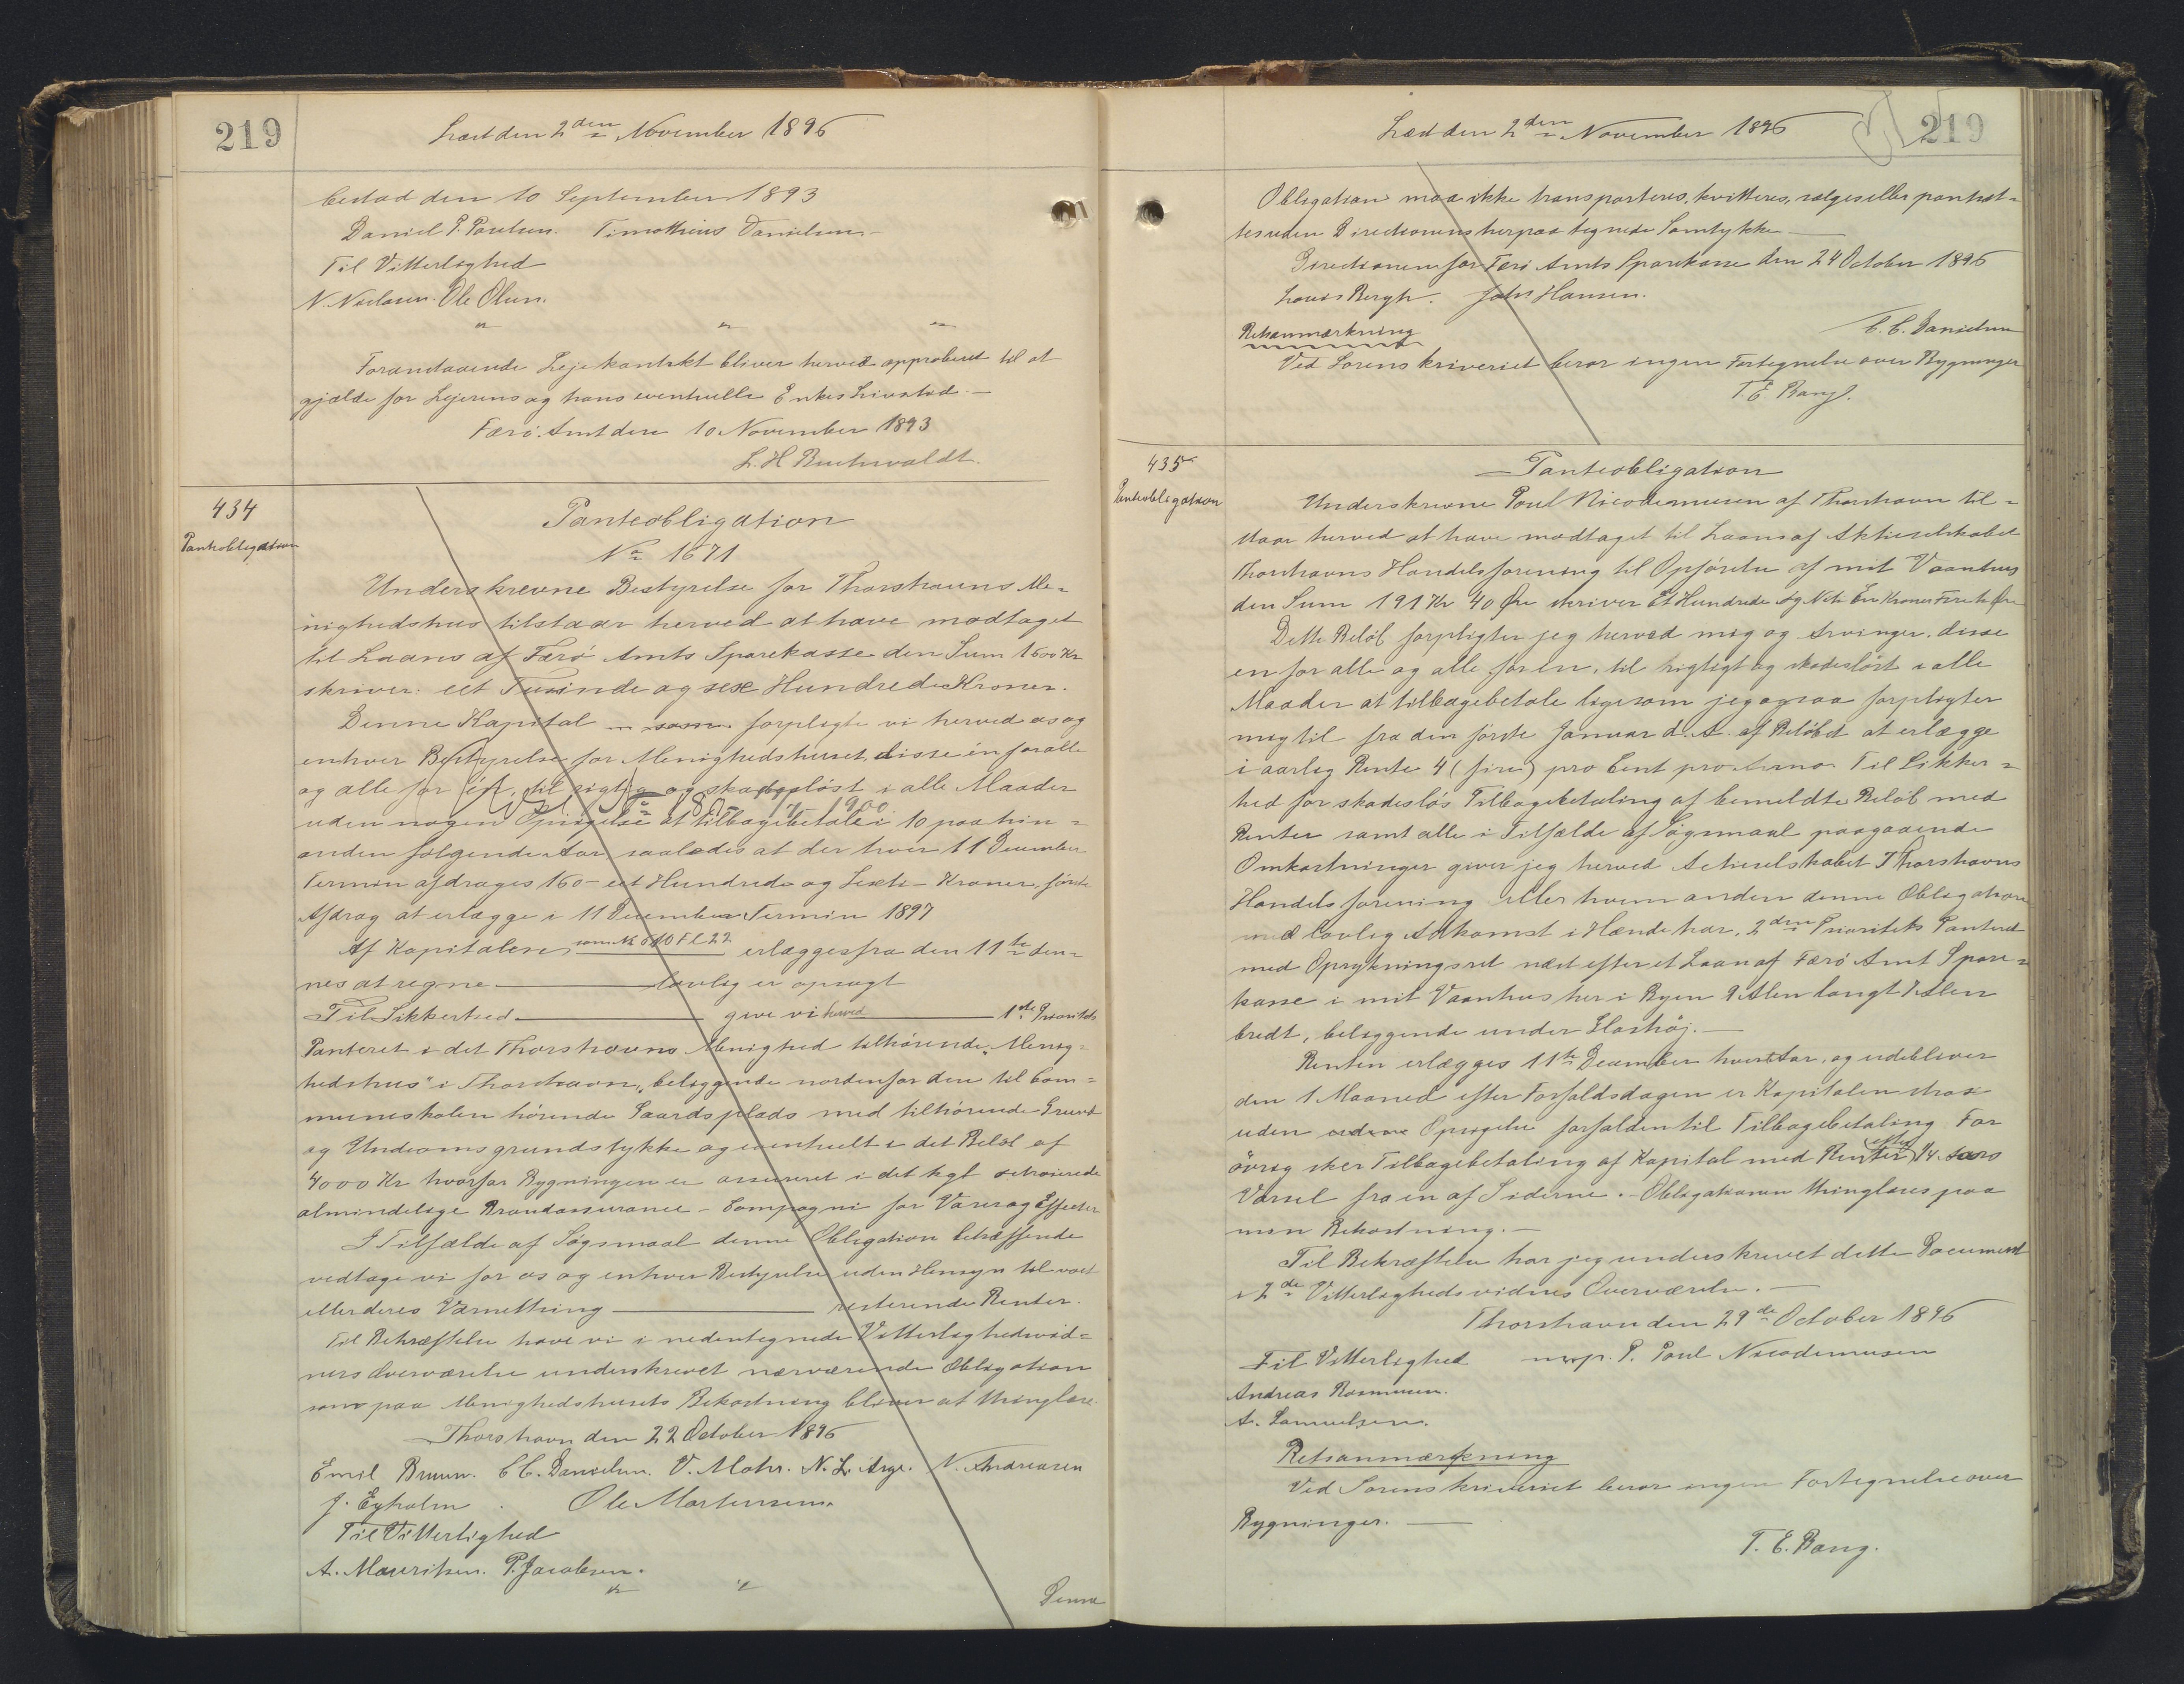 219
Læst den 2den November 1896
bestod den 10 September 1893
Daniel P. Poulsen. Timotheus Danielsen
Til Vitterlighed
N. Nielsen. Ole Olsen.
Foranstaaende Lejekontrakt bliver herved approberet til at
gjælde for Lejerens og hans eventuelle Enkes Livstid. —
Færö Amt den 10 November 1893
L. H Buchwaldt.
434
Panteobligation
Panteobligation
No 1671
Underskrevne Bestyrelse for Thorshavns Me=
nighedshus tilstaar herved at have modtaget
til Laans af Færö Amts Sparekasse den Sum 1600 Kr
skriver: eet Tusinde og sex Hundrede Kroner.
Denne Kapital – som forpligte vi herved os og
enhver Bestyrelse for Menighedshuset, disse én for alle
og alle for én, til rigtig og skadesløst i alle Maader
uden nogen Opsigelse at tilbagebetale i 10 paa hin=
anden følgende Aar saaledes at der hver 11 December
Termin afdrages 160 – eet Hundrede og Sexti – Kroner, første
Afdrag at erlægge i 11 December Termin 1897
Af Kapitalen som No 610 Fl 22 erlægges fra den 11te den=
nes at regne — lovlig er opsagt
Til Sikkerhed — give vi herved — 1ste Prioritets
Panteret i det Thorshavns Menighed tilhørende „Menig=
hedshus" i Thorshavn, beliggende nordenfor den til Com=
muneskolen hörende Gaardsplads med tilhörende Grund
og Undeomsgrundstykke og eventuelt i det Belöb af
4000 Kr hvorfor Bygningen er assureret i det kgl octroierede
almindelige Brandassurance-Compagni for Varer og Effecter
I Tilfælde af Søgsmaal denne Obligation betræffende
vedtage vi for os og enhver Bestyrelse uden Hensyn til vort
eller deres Værnething — resterende Renter.
Til Bekræftelse have vi i nedentegnede Vitterlighedsvid=
ners Overværelse underskrevet nærværende Obligation
som paa Menighedshusets Bekostning bliver at thinglæse.
Thorshavn den 22 October 1896
Emil Bruun. C. C. Danielsen. V. Mohr. N. L. Arge. N. Andreasen
J. Eyholm. Ole Mortensen.
Til Vitterlighed
A. Mauritsen. P. Jacobsen.
Denne
Læst den 2den November 1896
219
Obligation maa ikke transporteres, kvitteres, sælges eller pantsæt=
tes uden Directionens herpaa tegnede Samtykke —
Directionen for Færö Amts Sparekasse den 24 October 1896
Louis Bergh. Johs Hansen.
C. C. Danielsen
Retsanmærkning
Ved Sorenskriveriet beror ingen Fortegnelse over Bygninger
T. E Bang.
435
Panteobligation
Panteobligation
Underskrevne Poul Nicodemusen af Thorshavn til=
staar herved at have modtaget til Laans af Aktieselskabet
Thorshavns Handelsforening til Opförelse af mit Vaanhus
den Sum 191 Kr 40 Øre skriver Et Hundrede og Niti En Kroner Firti Øre
Dette Belöb forpligter jeg herved mig og Arvinger, disse
en for alle og alle for en, til rigtigt og skadeslöst i alle
Maader at tilbagebetale ligesom jeg ogsaa forpligter
mig til fra den förste Januar d. A. af Belöbet at erlægge
i aarlig Rente 4 (fire) pro Cent pro Anno. Til Sikker=
hed for skadeslös Tilbagebetaling af bemeldte Belöb med
Renter samt alle i Tilfælde af Søgsmaal paagaaende
Omkostninger giver jeg herved Actieselskabet Thorshavns
Handelsforening eller hvem anden denne Obligation
med lovlig Adkomst i Hænde har, 2den Prioritets Panteret
med Oprykningsret næst efter et Laan af Færö Amt Spare=
kasse i mit Vaanhus her i Byen 9 Alen langt 7 Alen
bredt, beliggende under Glashöj. —
Renten erlægges 11te December hvert Aar, og udebliver
den 1 Maaned efter Forfaldsdagen er Kapitalen strax
uden Opsigelse forfalden til Tilbagebetaling. For
övrig sker Tilbagebetaling af Kapital med Renter efter 1/4 Aars
Varsel fra en af Siderne. – Obligationen thinglæses paa
min Bekostning. —
Til Bekræftelse har jeg underskrevet dette Document
i 2de Vitterlighedsvidners Overværelse. —
Thorshavn den 29de October 1896
Til Vitterlighed m. f. P. Poul Nicodemusen
Andreas Rasmussen.
A. Samuelsen.
Retsanmærkning
Ved Sorenskriveriet beror ingen Fortegnelse over
Bygninger. —
T. E. Bang.